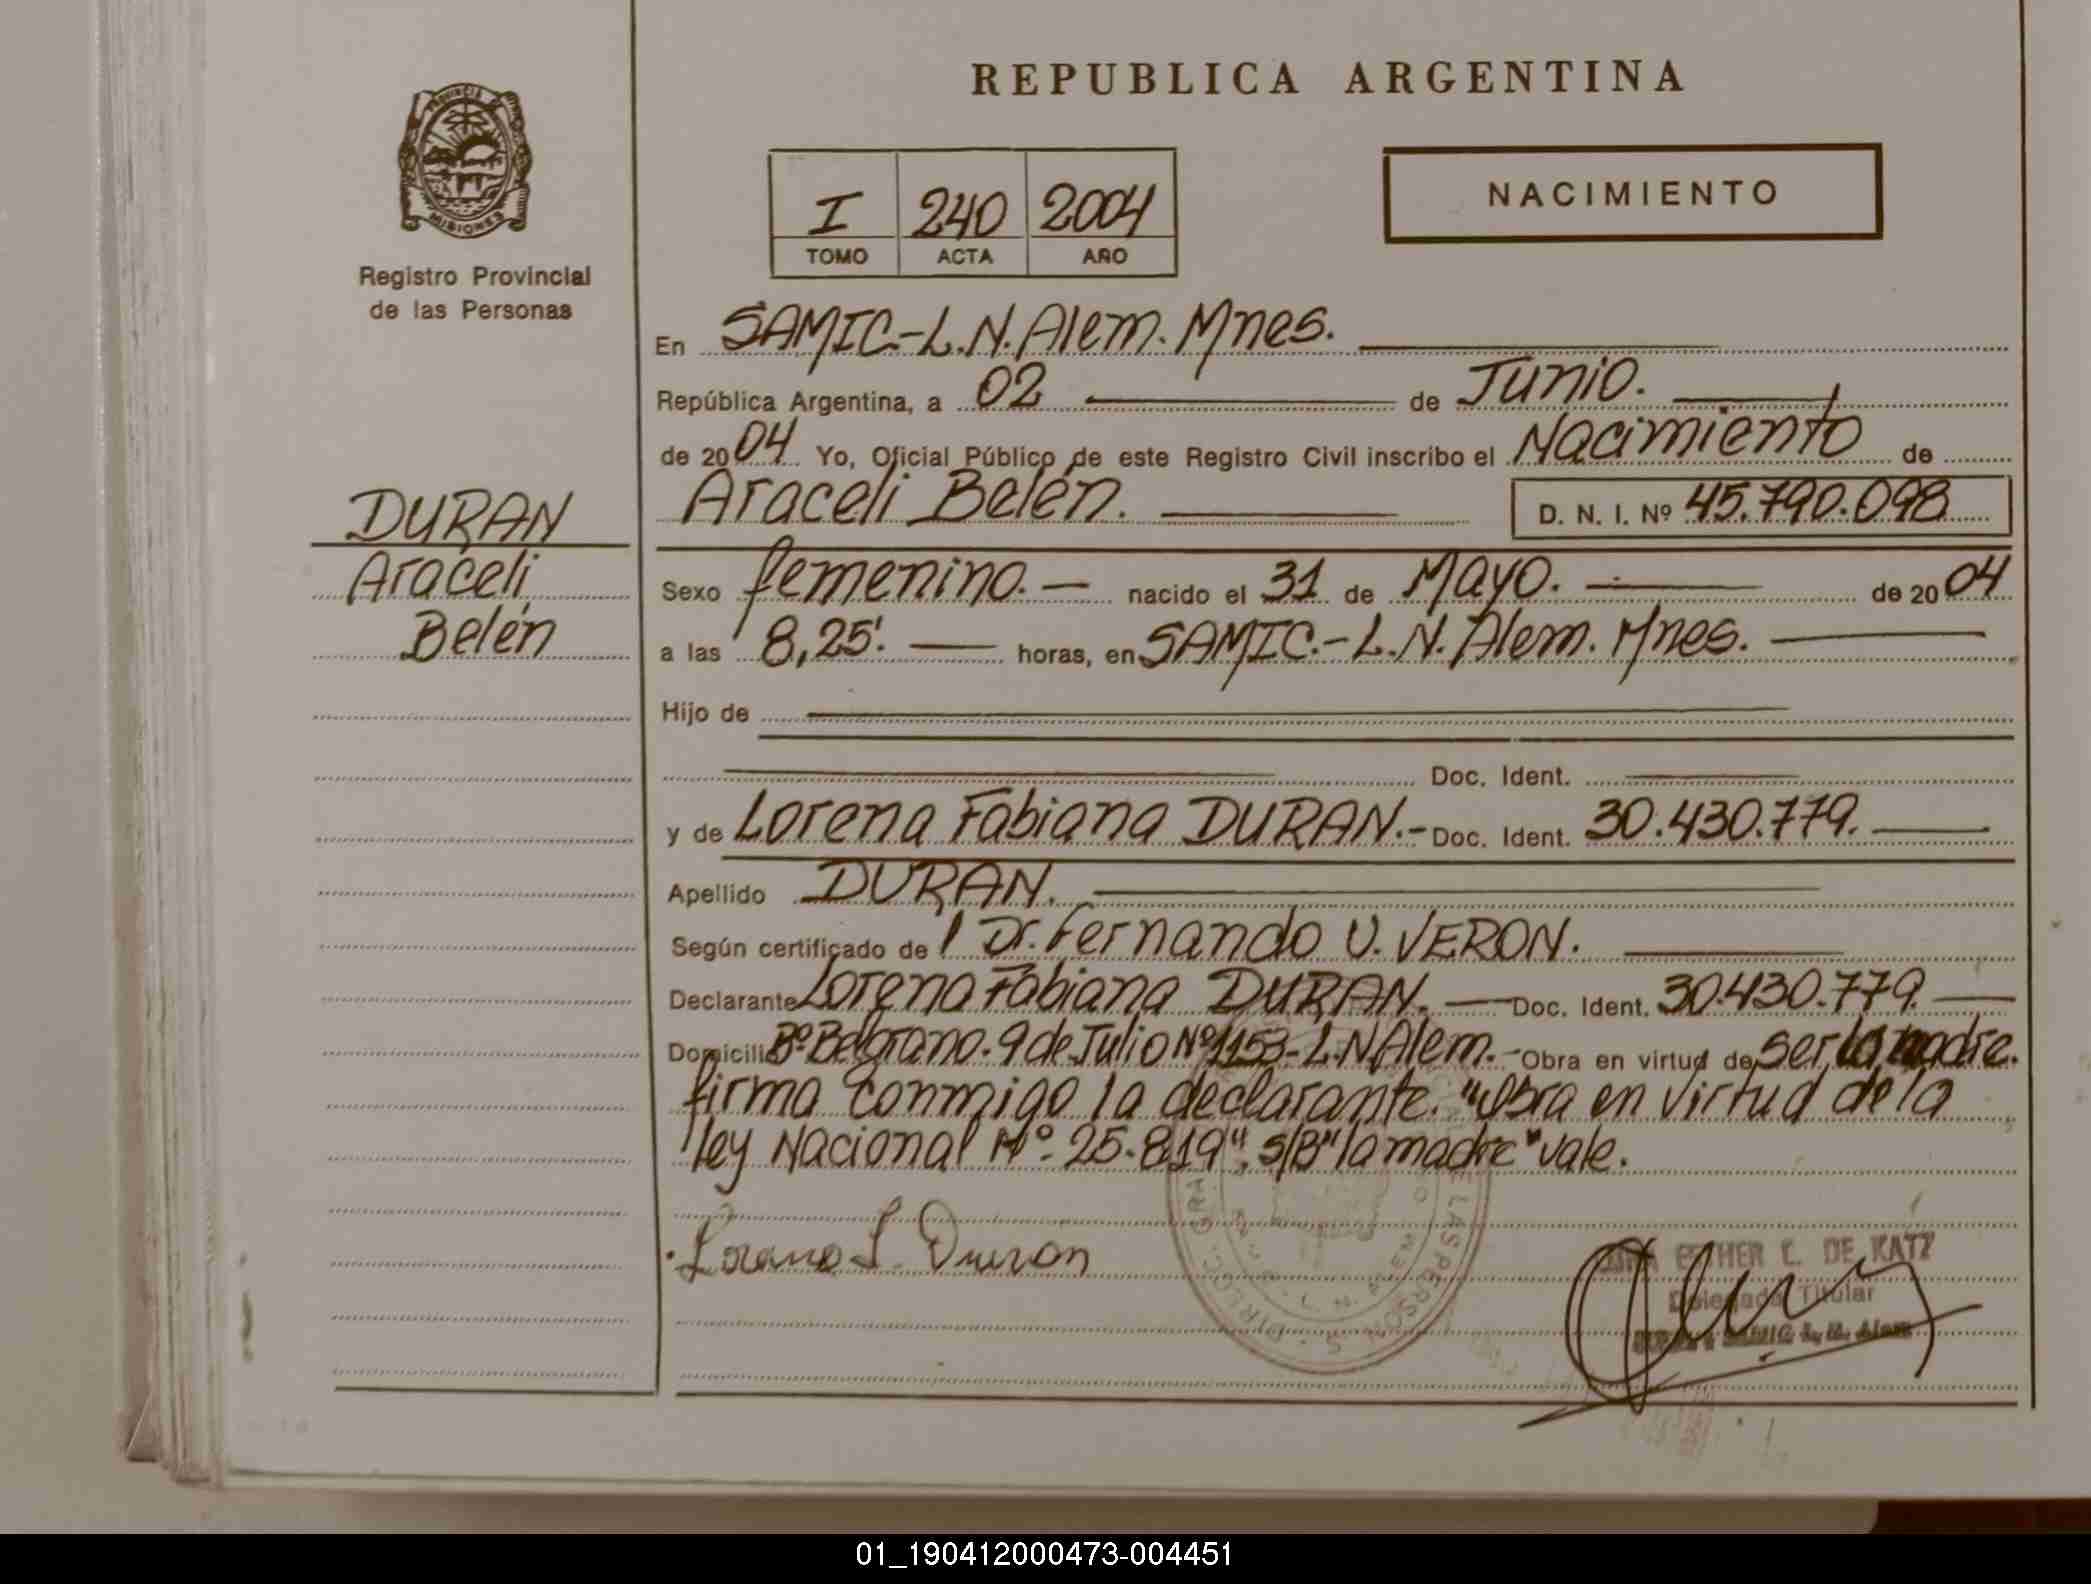 REPUBLICA ARGENTINA
PROVINCIA DE
MISIONES
Registro Provincial
de las Personas
NACIMIENTO
I 240 2004
TOMO ACTA AÑO
En SAMIC.-L.N.Alem. Mnes.
República Argentina, a 02 de Junio.
de 2004 Yo, Oficial Público de este Registro Civil inscribo el Nacimiento de
Araceli Belén. D. N. I. Nº 45.790.098
DURAN
Araceli
Belén
Sexo femenino.- nacido el 31 de Mayo. de 2004
a las 8,25'. horas, en SAMIC.-L.N.Alem. Mnes.
Hijo de
Doc. Ident.
y de Lorena Fabiana DURAN.- Doc. Ident. 30.430.779.
Apellido DURAN.
Según certificado de Dr. Fernando U. VERON.
Declarante Lorena Fabiana DURAN. Doc. Ident. 30.430.779.
Domicilio Bº Belgrano. 9 de Julio Nº 1153- L.N.Alem.- Obra en virtud de ser la madre.
firma conmigo la declarante. "Obra en virtud de la
ley Nacional Nº. 25.819", S/B "la madre" vale.
Lorena F. Duran
ESTHER C. DE KATZ
Delegada Titular
SAMIC L. N. Alem
DE LAS PERSONAS
01_190412000473-004451